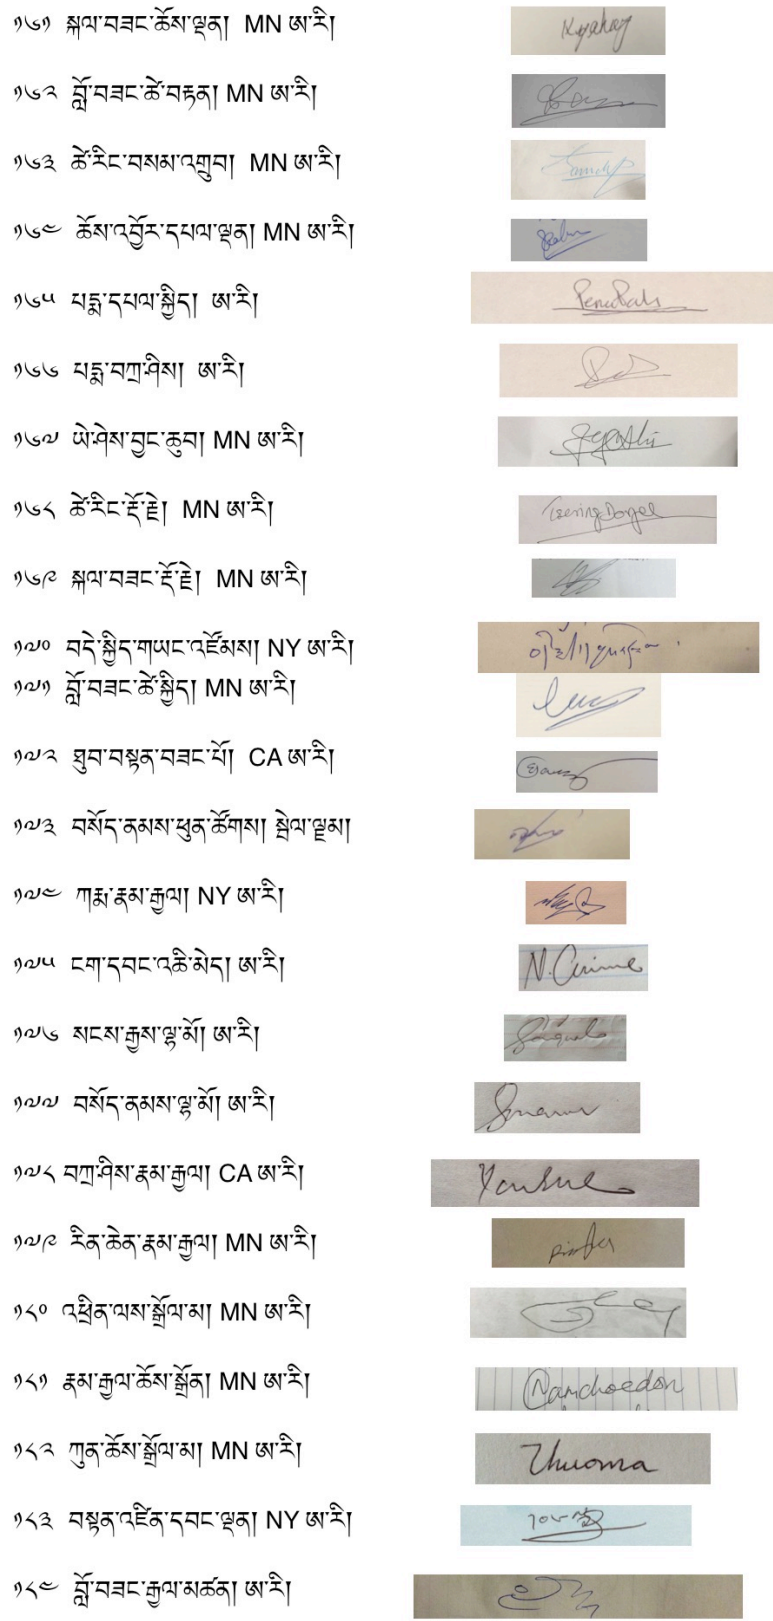 ༡༦༡ སྐལ་བཟང་ཆོས་ལྡན། MN ཨ་རི།
༡༦༢ བློ་བཟང་ཚེ་བརྟན། MN ཨ་རི།
༡༦༣ ཚེ་རིང་བསམ་འགྲུབ། MN ཨ་རི།
༡༦༤ ཆོས་འབྱོར་དཔལ་ལྡན། MN ཨ་རི།
༡༦༥ པདྨ་དཔལ་སྐྱིད། ཨ་རི།
༡༦༦ པདྨ་བཀྲ་ཤིས། ཨ་རི།
༡༦༧ ཡེ་ཤེས་བྱང་ཆུབ། MN ཨ་རི།
༡༦༨ ཚེ་རིང་རྡོ་རྗེ། MN ཨ་རི། Tsering Dorjee
༡༦༩ སྐལ་བཟང་རྡོ་རྗེ། MN ཨ་རི།
༡༧༠ བདེ་སྐྱིད་གཡང་འཛོམས། NY ཨ་རི།
༡༧༡ བློ་བཟང་ཚེ་སྐྱིད། MN ཨ་རི།
༡༧༢ ཐུབ་བསྟན་བཟང་པོ། CA ཨ་རི།
༡༧༣ བསོད་ནམས་ཕུན་ཚོགས། སྦེལ་ལྗམ།
༡༧༤ ཀརྨ་རྣམ་རྒྱལ། NY ཨ་རི།
༡༧༥ ངག་དབང་འཆི་མེད། ཨ་རི།
༡༧༦ སངས་རྒྱས་ལྷ་མོ། ཨ་རི།
༡༧༧ བསོད་ནམས་ལྷ་མོ། ཨ་རི།
༡༧༨ བཀྲ་ཤིས་རྣམ་རྒྱལ། CA ཨ་རི།
༡༧༩ རིན་ཆེན་རྣམ་རྒྱལ། MN ཨ་རི།
༡༨༠ འཕྲིན་ལས་སྒྲོལ་མ། MN ཨ་རི།
༡༨༡ རྣམ་རྒྱལ་ཆོས་སྒྲོན། MN ཨ་རི། Namchoedon
༡༨༢ ཀུན་ཆོས་སྒྲོལ་མ། MN ཨ་རི།
༡༨༣ བསྟན་འཛིན་དབང་ལྡན། NY ཨ་རི།
༡༨༤ བློ་བཟང་རྒྱལ་མཚན། ཨ་རི།